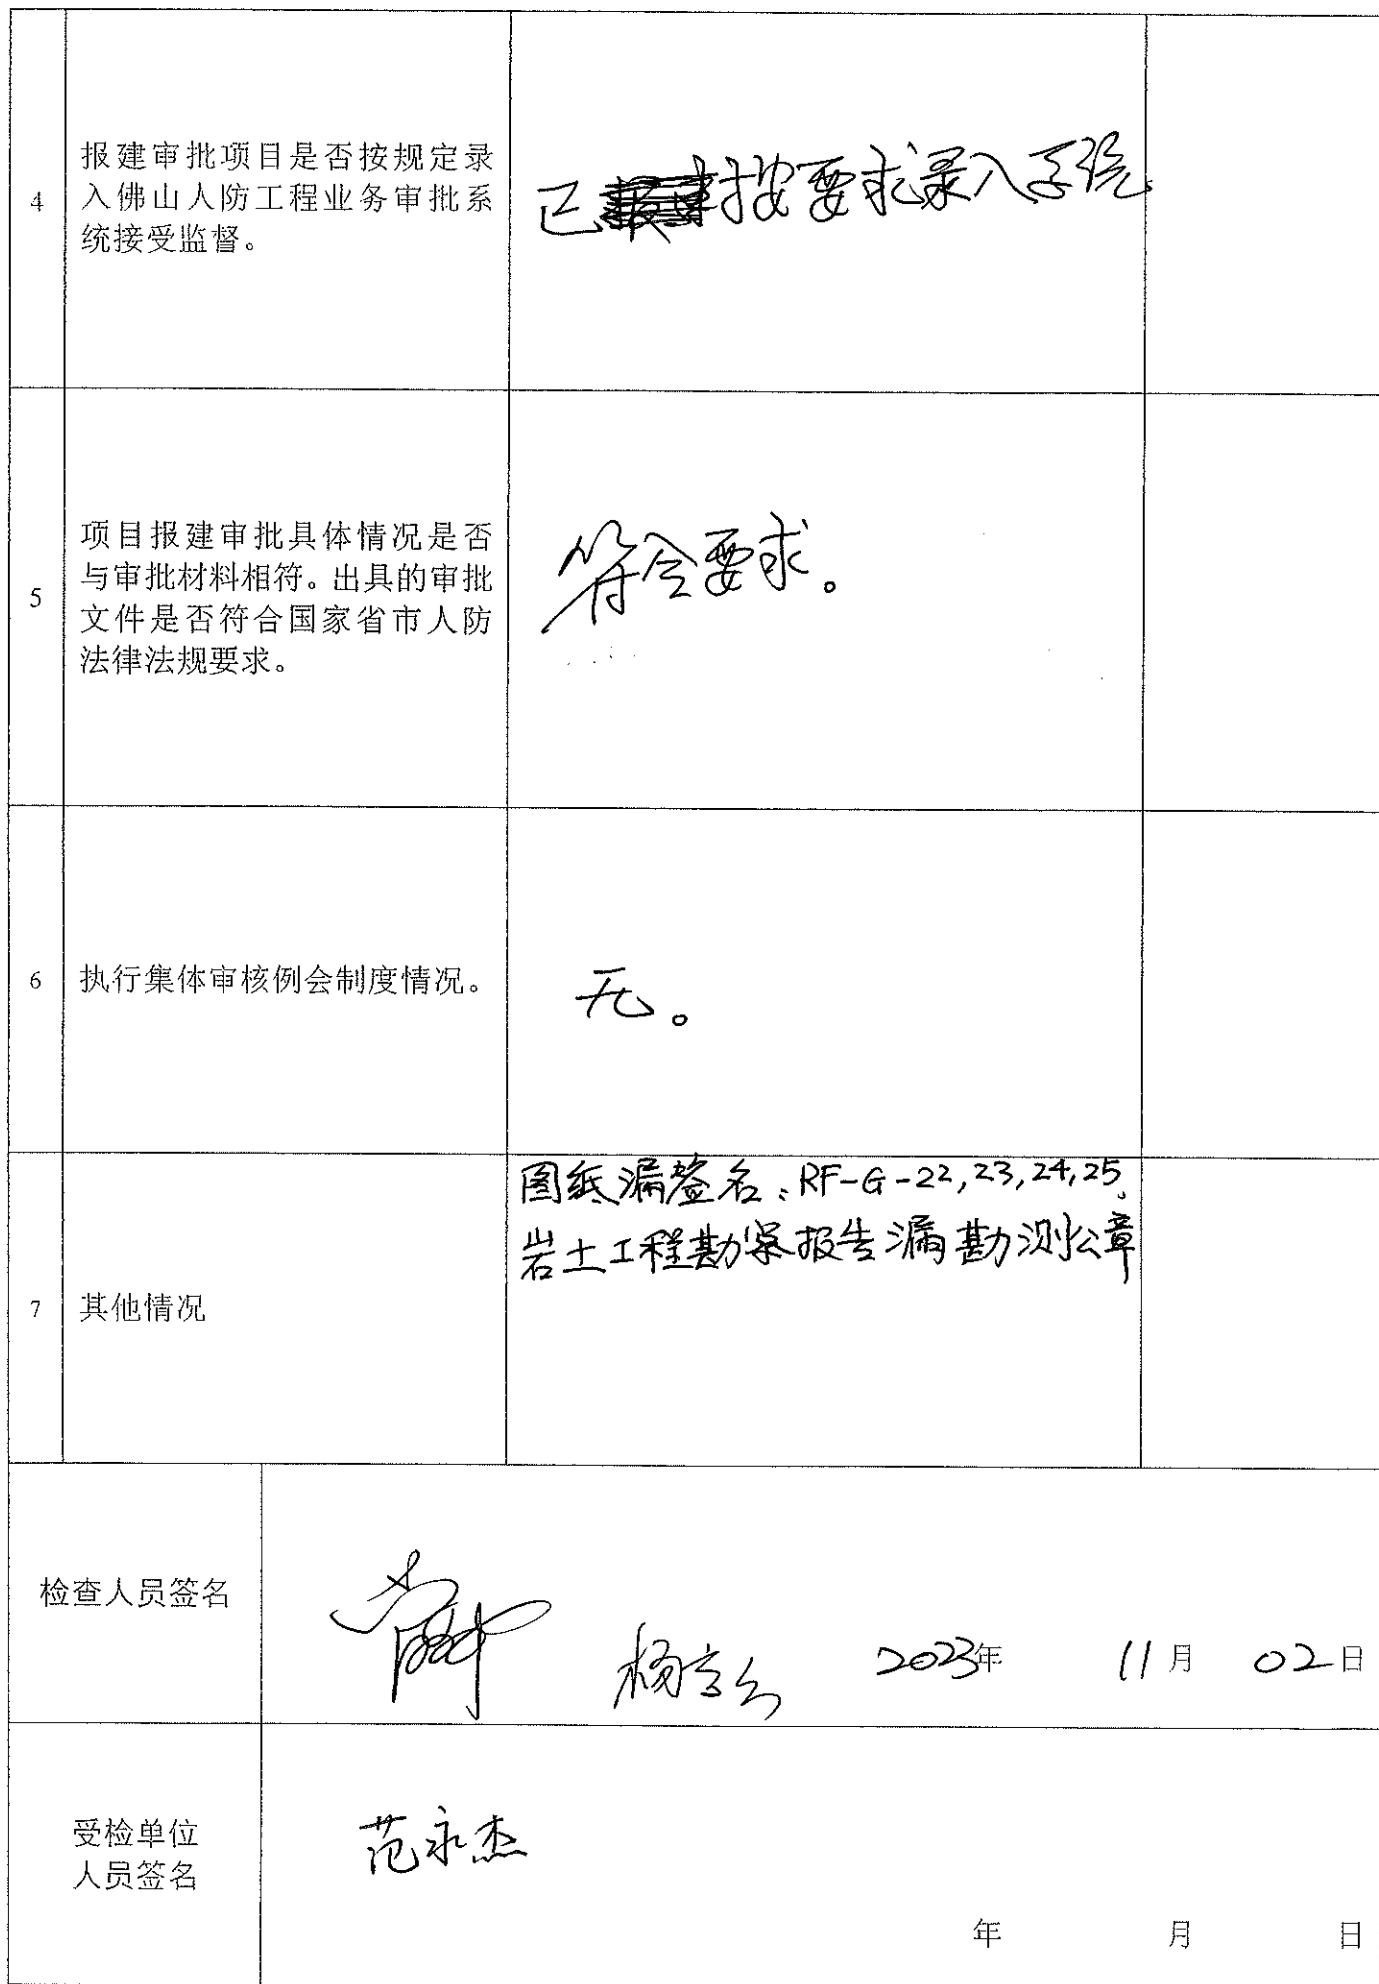 4
报建审批项目是否按规定录
入佛山人防工程业务审批系
统接受监督。
已按要求录入系统
5
项目报建审批具体情况是否
与审批材料相符。出具的审批
文件是否符合国家省市人防
法律法规要求。
符合要求。
6
执行集体审核例会制度情况。
无。
7
其他情况
图纸漏签名：RF-G-22,23,24,25。
岩土工程勘察报告漏勘测公章
检查人员签名
2023年 11月 02日
受检单位
人员签名
范永杰
年 月 日